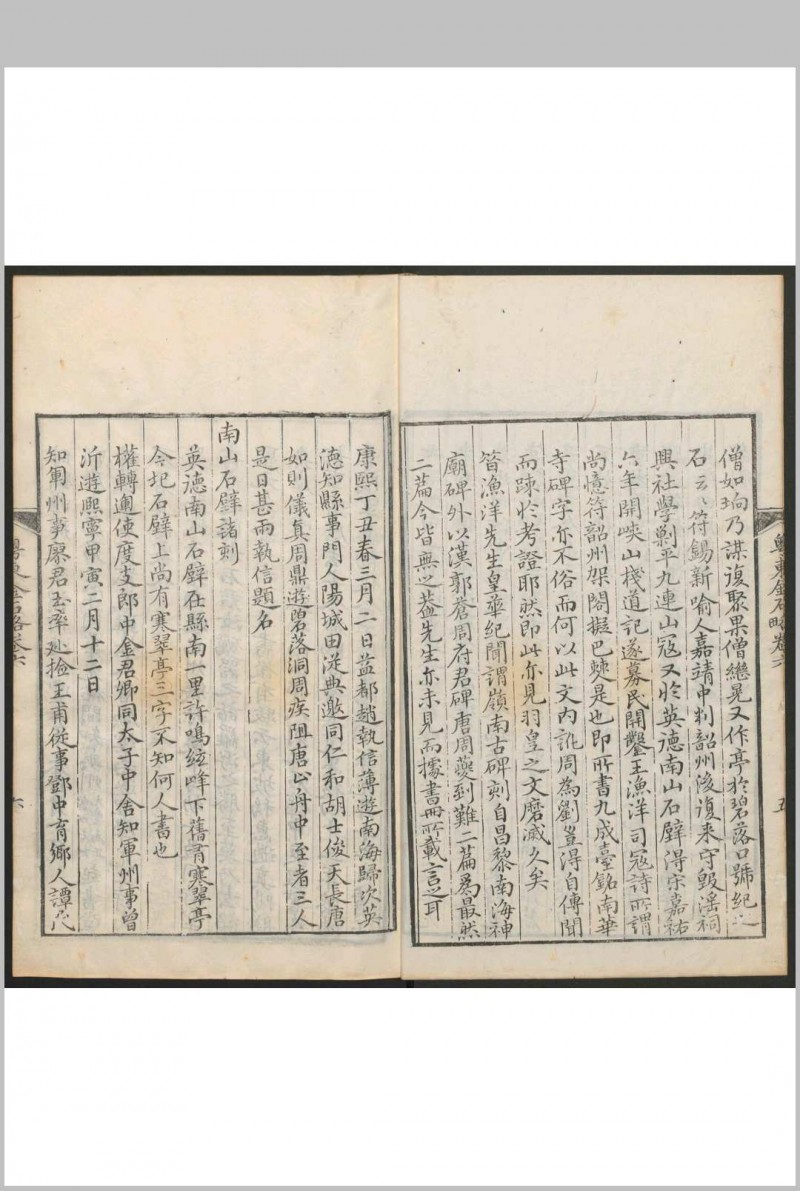 僧如珦乃謀復聚果僧繼晃又作亭於碧落口號紀之
石云〻符錫新喻人嘉靖中判韶州後復来守毀滛祠
興社學剿平九連山寇又於英德南山石壁得宋嘉祐
六年開峽山棧道記遂募民開鑿王漁洋司寇詩所謂
尚憶符韶州架閣擬巴𧶽是也即所書九成臺銘南華
寺碑字亦不俗而何以此文内訛周為劉豈得自傳聞
而踈於考證耶然即此亦見羽皇之文磨滅久矣
昝漁洋先生皇華紀聞謂嶺南古碑刻自昌黎南海神
廟碑外以漢郭蒼周府君碑唐周夔到難二篇為最然
二篇今皆無之葢先生亦未見而據書冊所載言之耳
粤東金石畧卷六
五
康熙丁丑春三月二日益都趙執信薄遊南海歸次英
德知縣事門人陽城田從典邀同仁和胡士俊天長唐
如則儀真周鼎遊碧落洞周疾阻唐止舟中至者三人
是日甚雨執信題名
南山石壁諸刻
英德南山石壁在縣南一里許鳴絃峰下舊有寒翠亭
今圮石壁上尚有寒翠亭三字不知何人書也
權轉運使度支郎中金君卿同太子中舍知軍州事曾
沂遊熙寧甲寅二月十二日
知軍州事廖君玉率巡撿王甫從事鄧中育鄉人譚
粤東金石畧卷六
六